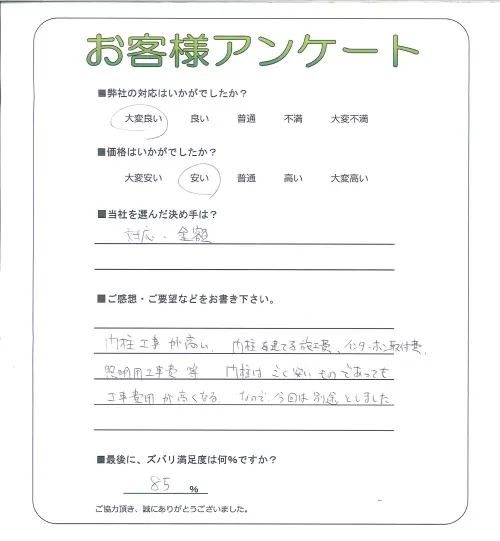 お客様アンケート
■弊社の対応はいかがでしたか？
大変良い 良い 普通 不満 大変不満
■価格はいかがでしたか？
大変安い 安い 普通 高い 大変高い
■当社を選んだ決め手は？
対応・金額
■ご感想・ご要望などをお書き下さい。
門柱工事が高い、門柱を建てる施工費、インターホン取付費、
照明用工事費等 門柱はごく安いものであっても
工事費用が高くなる なので、今回は別途としました
■最後に、ズバリ満足度は何％ですか？
85 %
ご協力頂き、誠にありがとうございました。